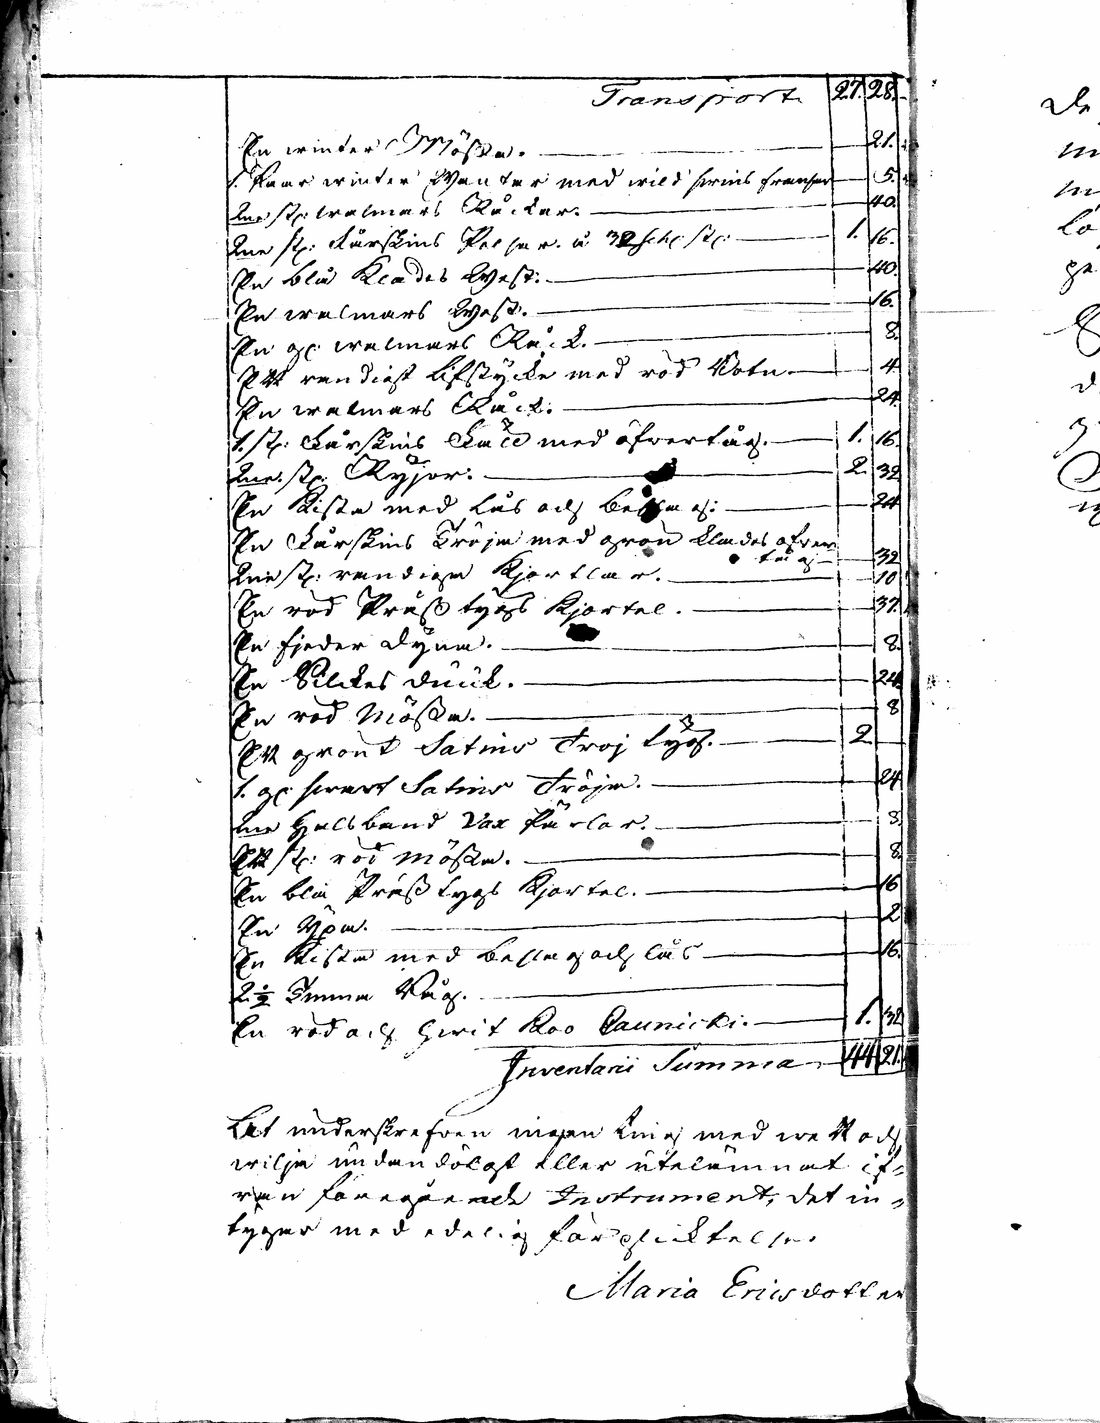 Transport 27. 28.
En winter Mössa. 21.
1. Paar winter Wantar med wild skins fransar 5.
2ne st: walmars Råckar. 40.
2ne st: Fårskins Pelsar. à 32 sch: st: 1. 16.
En blå Klädes West. 40.
En walmars West. 16.
En gl: walmars Råck. 8.
Ett randigt lifstycke med röd 4.
En walmars Råck. 24.
1. st: Fårskins Fäll med öfvertåg. 1. 16.
2ne st: Ryjor. 2. 32
En Kista med lås och beslag: 24
En Fårskins Tröja med grön Klädes öfver
tåg 32
2ne st: randiga Kjortlar. 10
En röd Prässtygs Kjortel. 37.
En fjeder Dyna. 8.
En Silckes duuk. 24
En röd Mössa. 8
Ett grönt Satins Tröj tyg. 2
1. gl: swart Satins Tröja. 24
2ne Halsband Vax Pärlor. 8.
Ett st: röd Mössa. 8.
En blå Prässtygs Kjortel. 16
En 2
En Kista med beslag och lås 16.
2 1/2
En röd och hwit Koo 1. 32
Inventarii Summa 44 21.
Lat underskrefven ingen ting med wett och
wilja undandölgt eller utelämnat if-
rån föregående Instrument, det in-
tygar med edelig förplicktelse.
Maria Ericsdotter
De